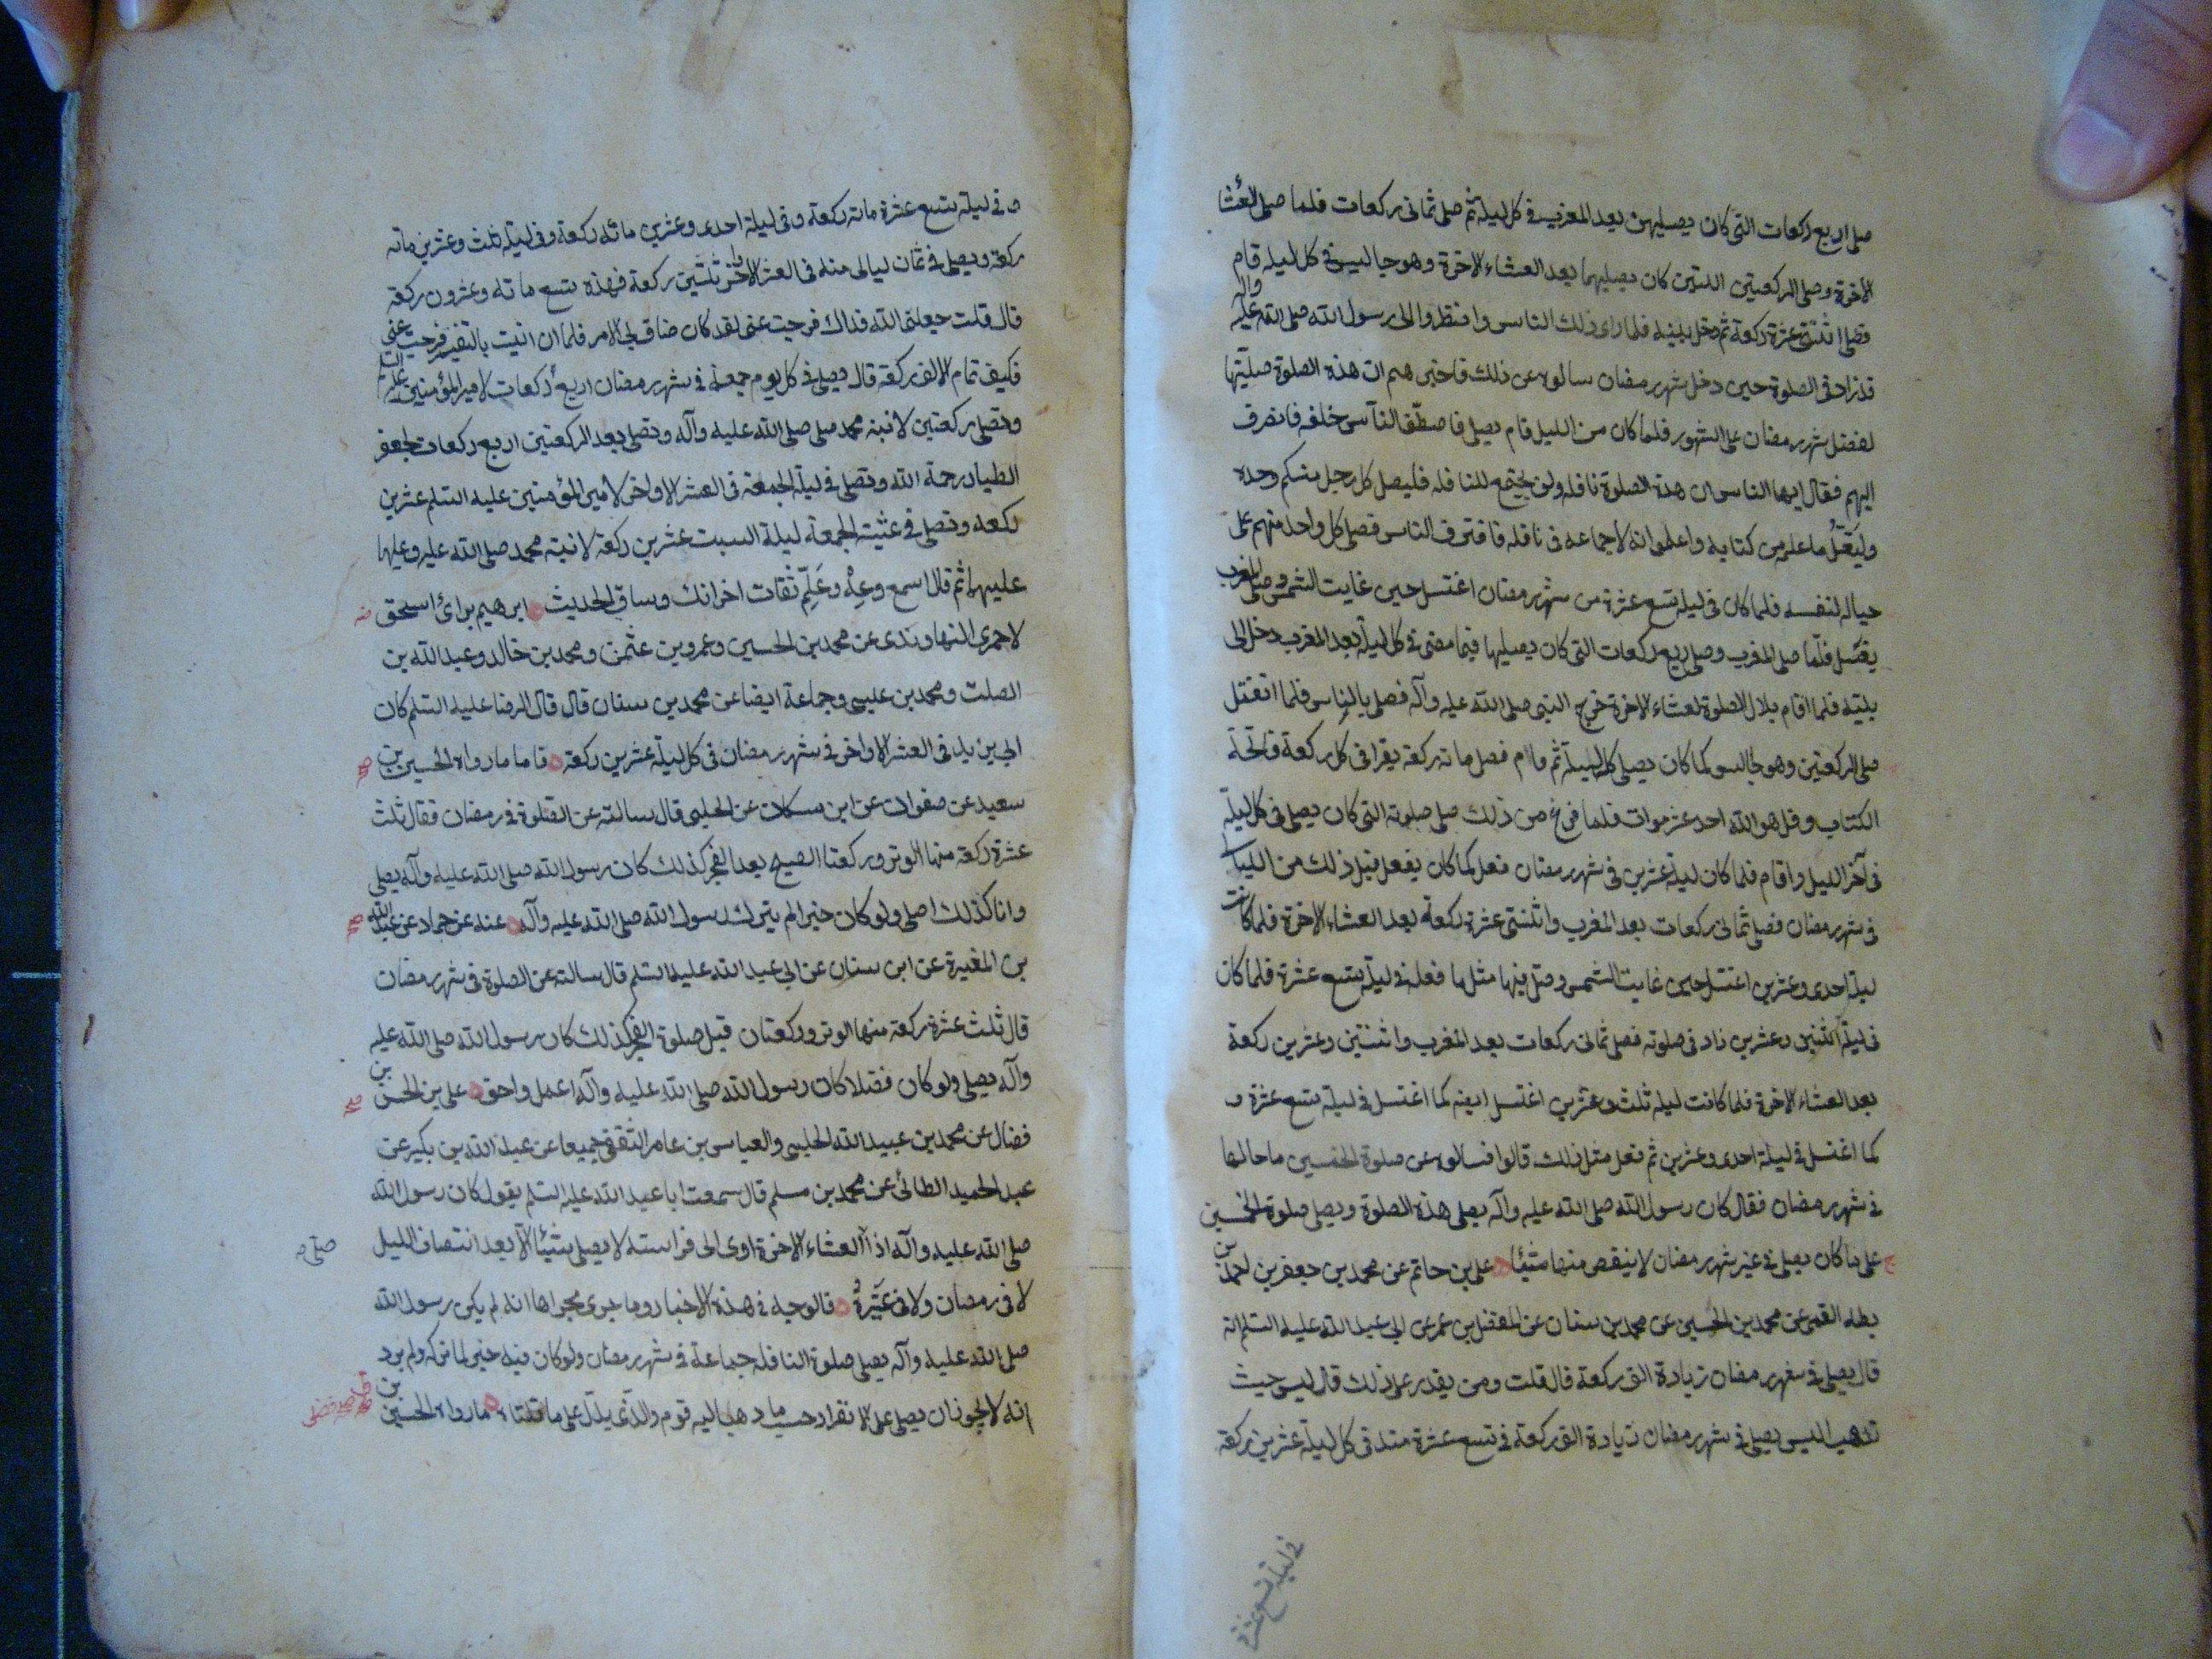 صلى اربع ركعات التى كان يصليهن بعد المغرب فى كل ليلة ثم صلى ثمانى ركعات فلما صلى العشاء
الاخرة وصلى الركعتين اللتين كان يصليهما بعد العشاء الاخرة وهو جالس فى كل ليله قام
فصلى اثنتى عشرة ركعة ثم دخل بيته فلما راى ذلك الناس ونظروا الى رسول الله صلى الله عليه واله
قد زاد فى الصلوة حين دخل شهر رمضان سالوه عن ذلك فاخبرهم ان هذه الصلوة صليتها
لفضل شهر رمضان على الشهور فلما كان من الليل قام يصلى فاصطف الناس خلفه فانصرف
اليهم فقال ايها الناس ان هذه الصلوة نافله ولن يجتمع للنافله فليصل كل رجل منكم وحده
وليقل ما علمه من كتابه واعلموا انه لا جماعه فى نافله فافترق الناس فصلى كل واحد منهم على
حياله لنفسه فلما كان فى ليله تسع عشرة من شهر رمضان اغتسل حين غابت الشمس وصلى المغرب
بغسل فلما صلى المغرب وصلى اربع ركعات التى كان يصليها فيما مضى فى كل ليلة بعد المغرب دخل الى
بيته فلما اقام بلال الصلوة لعشاء الاخرة خرج النبى صلى الله عليه وآله فصلى بالناس فلما انفتل
صلى الركعتين وهو جالس كما كان يصلى كل ليلة ثم قام فصلى مائة ركعة يقرا فى كل ركعة فاتحة
الكتاب وقل هو الله احد عشر مرات فلما فرغ من ذلك صلى صلوته التى كان يصلى فى كل ليلة
فى آخر الليل واقام فلما كان ليلة عشرين فى شهر رمضان فعل كما كان يفعل قبل ذلك من الليالى
فى شهر رمضان فصلى ثمانى ركعات بعد المغرب واثنتى عشرة ركعة بعد العشاء الاخرة فلما كانت
ليلة احدى وعشرين اغتسل حين غابت الشمس وصلى فيها مثل ما فعل فى ليلة تسع عشرة فلما كان
فى ليلة اثنين وعشرين زاد فى صلوته فصلى ثمانى ركعات بعد المغرب واثنتين وعشرين ركعة
بعد العشاء الاخرة فلما كانت ليله ثلث وعشرين اغتسل ايضا كما اغتسل فى ليلة تسع عشرة و
كما اغتسل فى ليلة احدى وعشرين ثم فعل مثل ذلك قالوا فسالوه عن صلوة الخمسين ما حالها
فى شهر رمضان فقال كان رسول الله صلى الله عليه وآله يصلى هذه الصلوة ويصلى صلوة الخمسين
على ما كان يصلى فى غير شهر رمضان لا ينقص منها شيئا على بن حاتم عن محمد بن جعفر بن احمد بن
بطه القمى عن محمد بن الحسين عن محمد بن سنان عن المفضل بن عمر عن ابى عبد الله عليه السلم انه
قال يصلى فى شهر رمضان زيادة الف ركعة قال قلت ومن يقدر على ذلك قال ليس حيث
تذهب اليس يصلى فى شهر رمضان زيادة الف ركعة فى تسع عشرة منه فى كل ليلة عشرين ركعة
فى ليلة تسع عشرة
و فى ليلة تسع عشرة مائة ركعة وفى ليلة احدى وعشرين مائه ركعة وفى ليلة ثلث وعشرين مائه
ركعة ويصلى فى ثمان ليالى منه فى العشر الاواخر ثلثين ركعة فهذه تسع مائه وعشرون ركعة
قال قلت جعلنى الله فداك فرجت عنى لقد كان ضاق بى الامر فلما ان اتيت بالتفسير فرجت عنى
فكيف تمام الالف ركعة قال يصلى فى كل يوم جمعة فى شهر رمضان اربع ركعات لامير المؤمنين عليه السلم
وتصلى ركعتين لابنة محمد صلى صلى الله عليه وآله وتصلى بعد الركعتين اربع ركعات لجعفر
الطيار رحمة الله وتصلى فى ليلة الجمعة فى العشر الاواخر لامير المؤمنين عليه السلم عشرين
ركعه وتصلى فى عشية الجمعة ليلة السبت عشرين ركعة لابنة محمد صلى الله عليه وعليها
عليهما ثم قال اسمع وعه وعلم ثقات اخوانك وساق الحديث ابرهيم بن ابى اسحق
لاحمرى النهاوندى عن محمد بن الحسين وعمرو بن عثمن ومحمد بن خالد وعبد الله بن
الصلت ومحمد بن عليسى وجماعة ايضا عن محمد بن سنان قال قال الرضا عليه السلم كان
ابى يزيد فى العشر الاواخر فى شهر رمضان فى كل ليلة عشرين ركعة فاما ما رواه الحسين بن
سعيد عن صفوان عن ابن مسكان عن الحلبى قال سالته عن الصلوة فى رمضان فقال ثلث
عشرة ركعة منها الوتر وركعتا الصبح بعد الفجر كذلك كان رسول الله صلى الله عليه وآله يصلى
وانا كذلك اصلى ولو كان خيرا لم يتركه رسول الله صلى الله عليه وآله عنه عن حماد عن عبد الله
بن المغيرة عن ابن سنان عن ابى عبد الله عليه السلم قال سالته عن الصلوة فى شهر رمضان
قال ثلث عشرة ركعة منها الوتر وركعتان قبل صلوة الفجر كذلك كان رسول الله صلى الله عليه
وآله يصلى ولو كان فضلا كان رسول الله صلى الله عليه وآله اعمل واحق على بن الحسن بن
فضال عن محمد بن عبيد الله الحلبى والعباس بن عامر الثقفى جميعا عن عبد الله بن بكير عن
عبد الحميد الطائى عن محمد بن مسلم قال سمعت ابا عبد الله عليه السلم يقول كان رسول الله
صلى الله عليه وآله اذا العشاء الاخرة اوى الى فراشه لا يصلى شيئا الا بعد انتصاف الليل
صلى
لا فى رمضان ولا فى غيره فالوجه فى هذه الاخبار وما جرى مجراها انه لم يكن رسول الله
صلى الله عليه وآله يصلى صلوة النافله جماعة فى شهر رمضان ولو كان فيه خير لما تركه ولم يرد
انه لا يجوز ان يصلى على الانفراد حسب ما ذهب اليه قوم والذى يدل على ما قلناه ما رواه الحسين بن